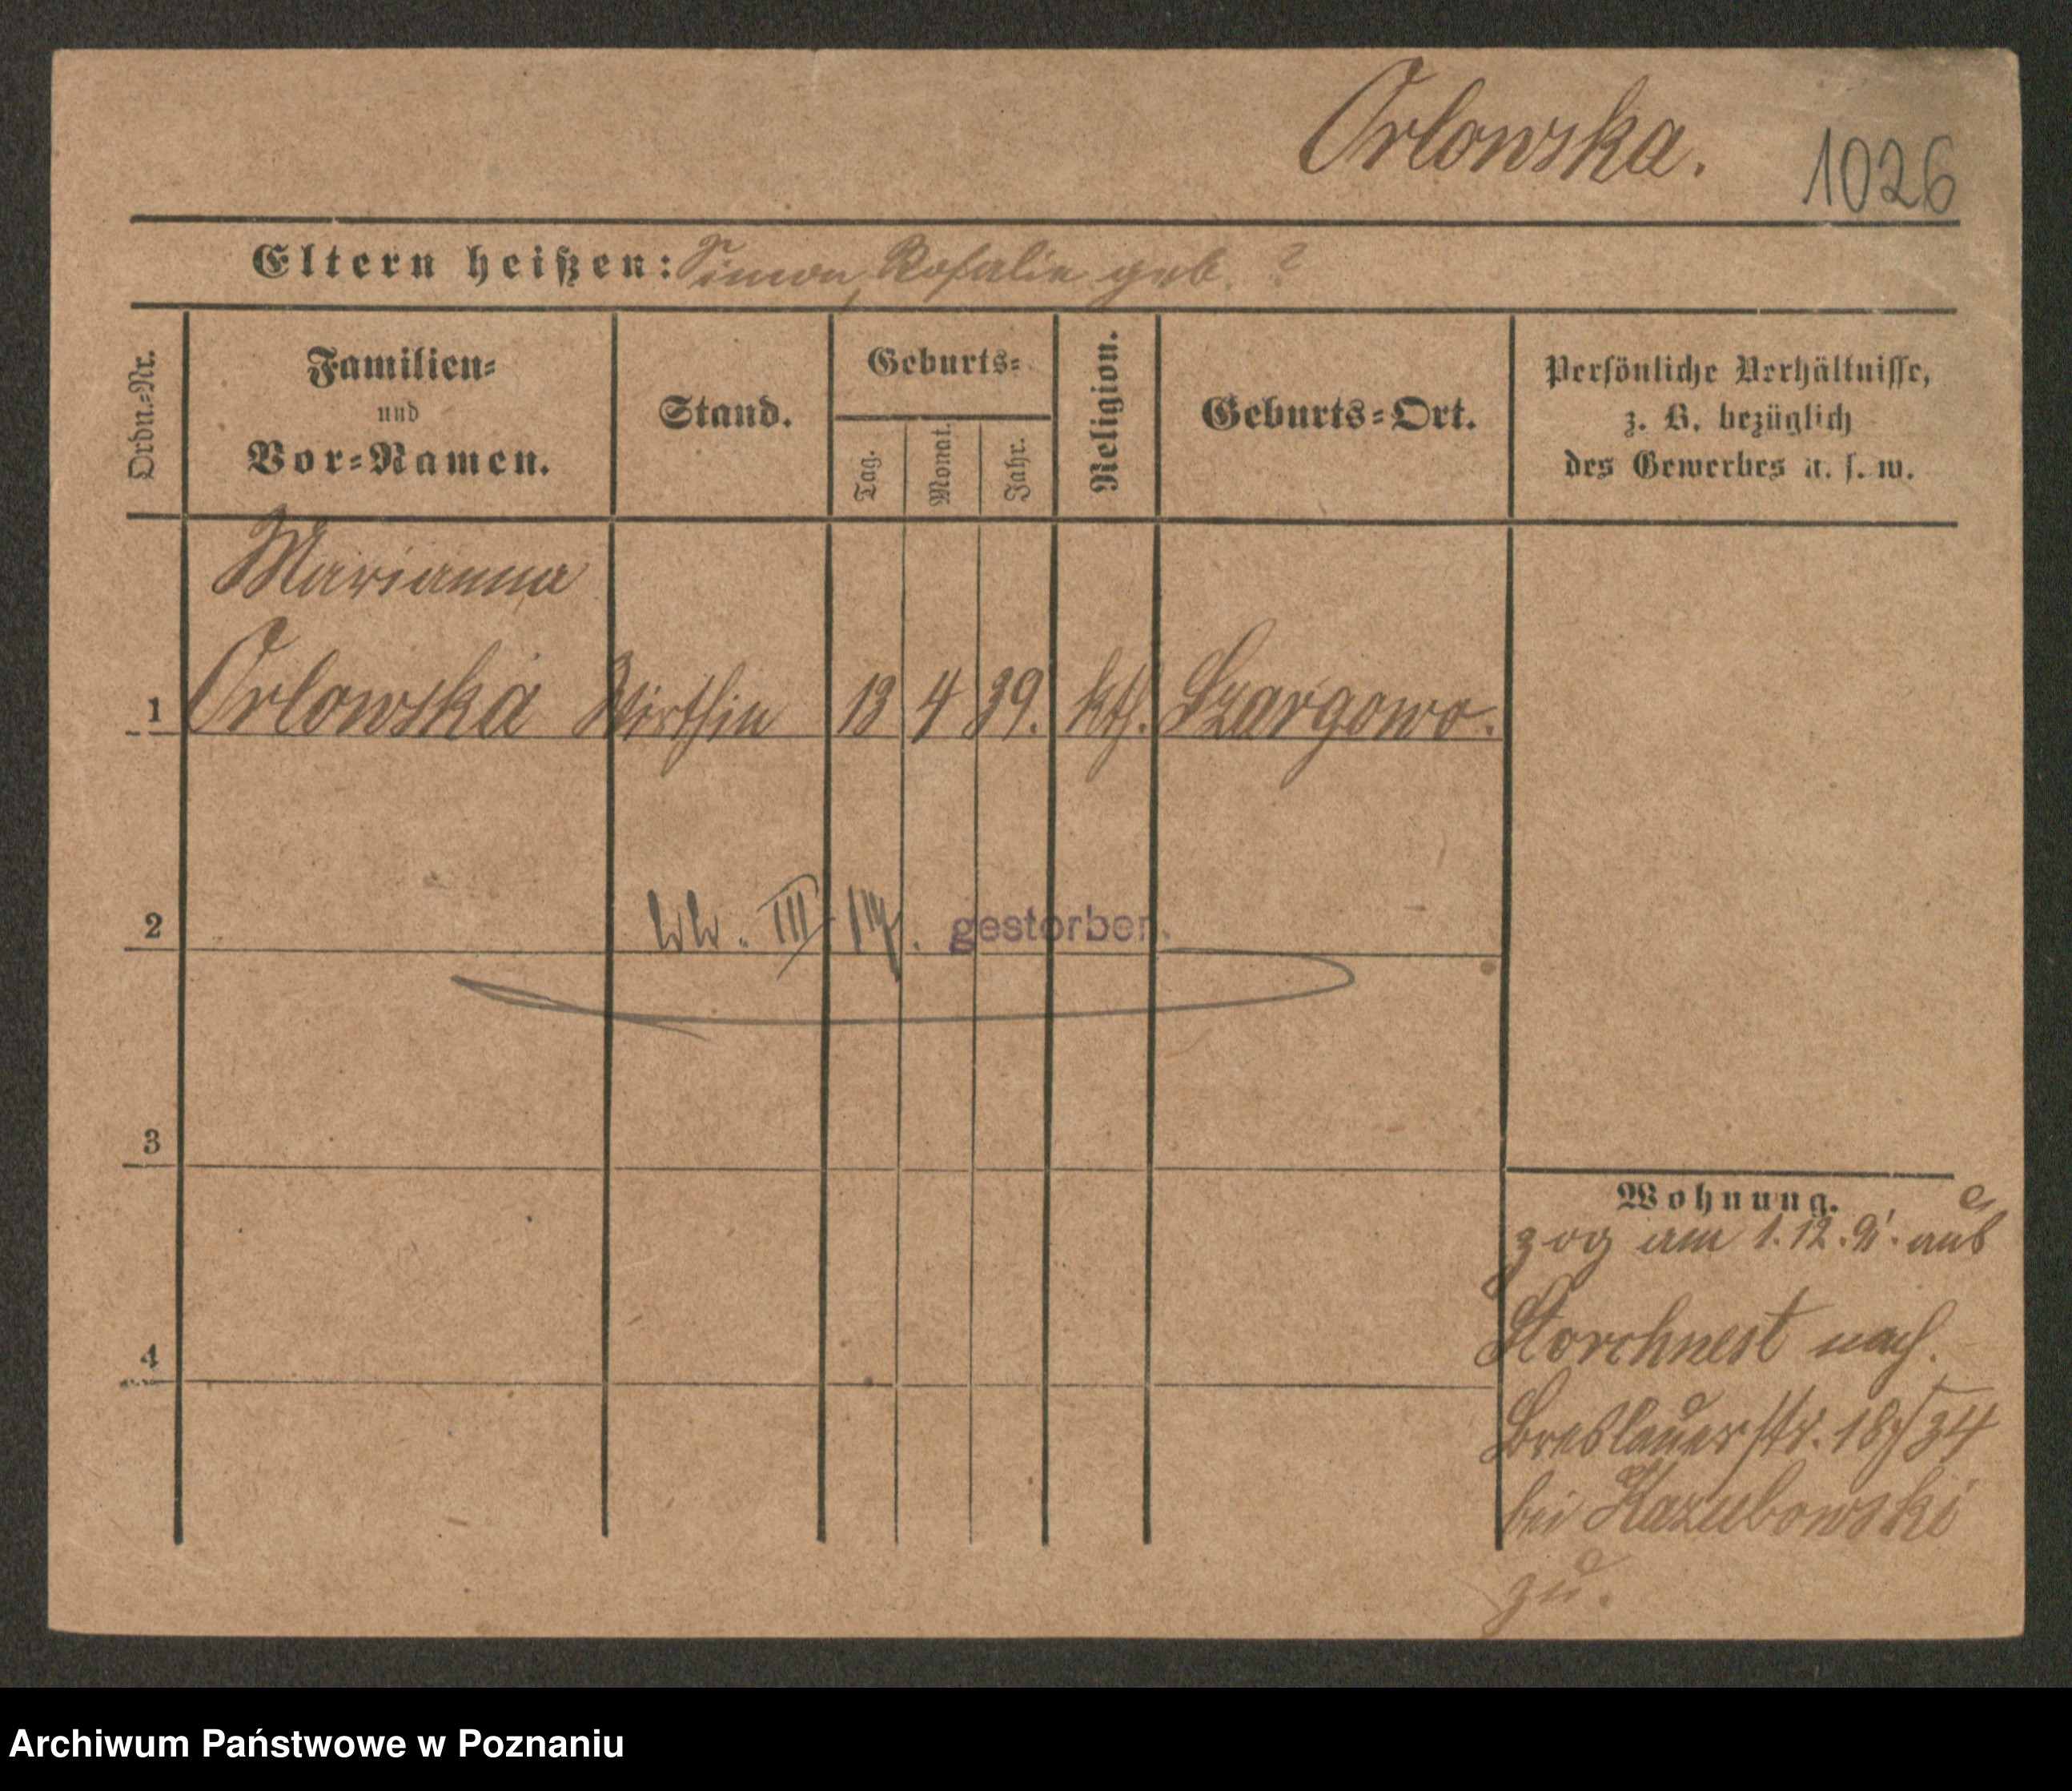 Orlowska.
1026
Eltern heißen: Simon, Rosalie geb. ?
Ordn.-Nr.
Familien-
und
Vor-Namen.
Stand.
Geburts-
Tag.
Monat.
Jahr.
Religion.
Geburts-Ort.
Persönliche Verhältnisse,
z. B. bezüglich
des Gewerbes u. s. w.
Marianna
1 Orlowska Wirthin 13 4 39. kth. Szargowo.
2 III gestorben.
3
4
Wohnung.
zog am 1. 12. aus
Storchnest nach
Breslauerstr. 18/34
bei Kazubowski
zu.
Archiwum Państwowe w Poznaniu